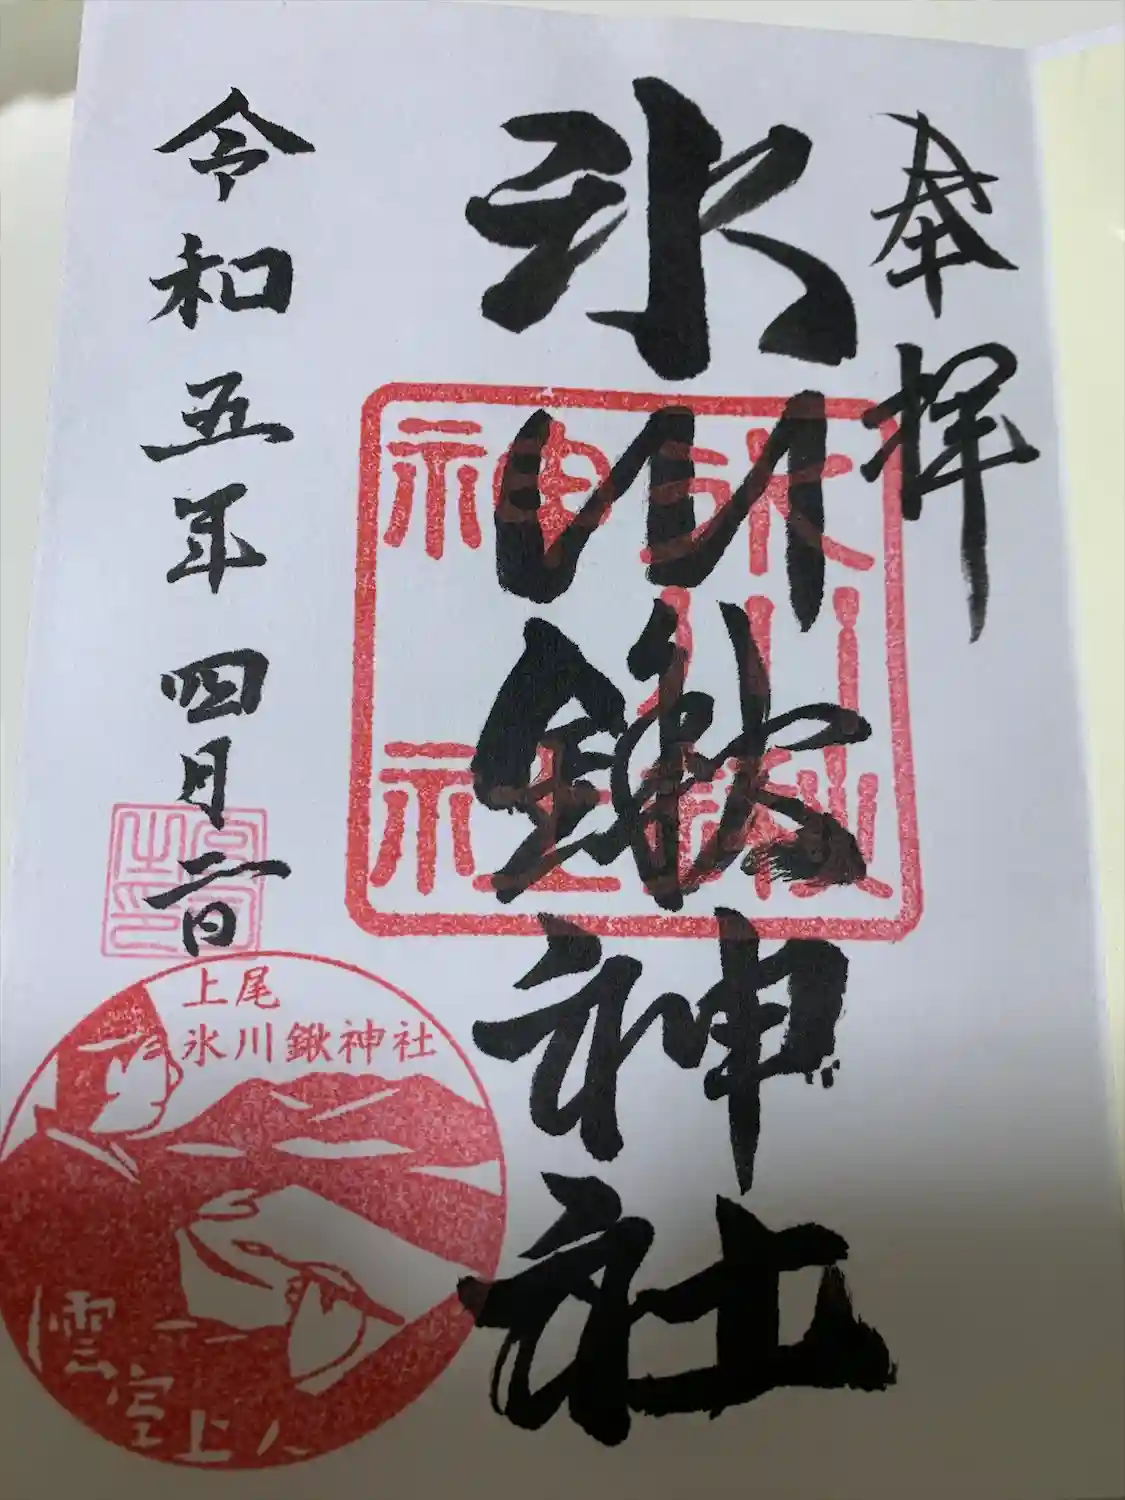 奉拝
氷川鍬神社
令和五年四月一日
氷川鍬神社
上尾
氷川鍬神社
雲室上人